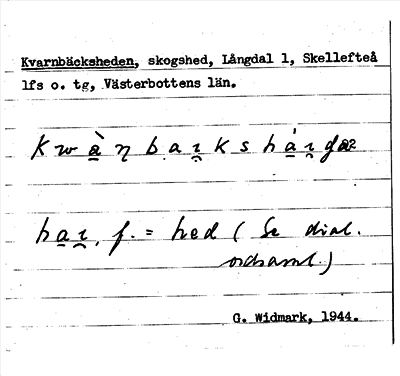 Kvarnbäcksheden, skogshed, Långdal 1, Skellefteå
lfs o. tg, Västerbottens län.
f. = hed ( Se dial.
ordsaml.)
G. Widmark, 1944.